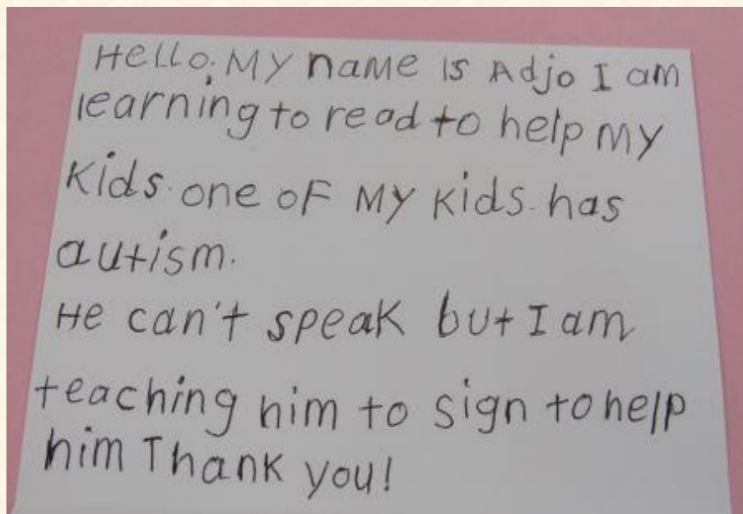 Hello. My name is Adjo I am
learning to read to help my
kids. one of my kids. has
autism.
He can't speak but I am
teaching him to sign to help
him Thank you!